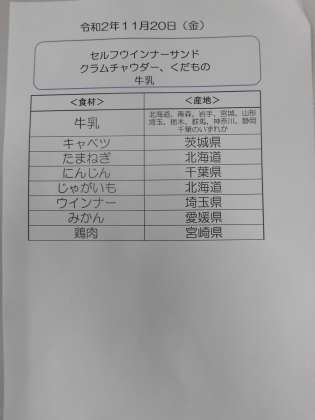 令和2年11月20日（金）
セルフウインナーサンド
クラムチャウダー、くだもの
牛乳
＜食材＞ ＜産地＞
牛乳 北海道、青森、岩手、宮城、山形
埼玉、栃木、群馬、神奈川、静岡
千葉のいずれか
キャベツ 茨城県
たまねぎ 北海道
にんじん 千葉県
じゃがいも 北海道
ウインナー 埼玉県
みかん 愛媛県
鶏肉 宮崎県